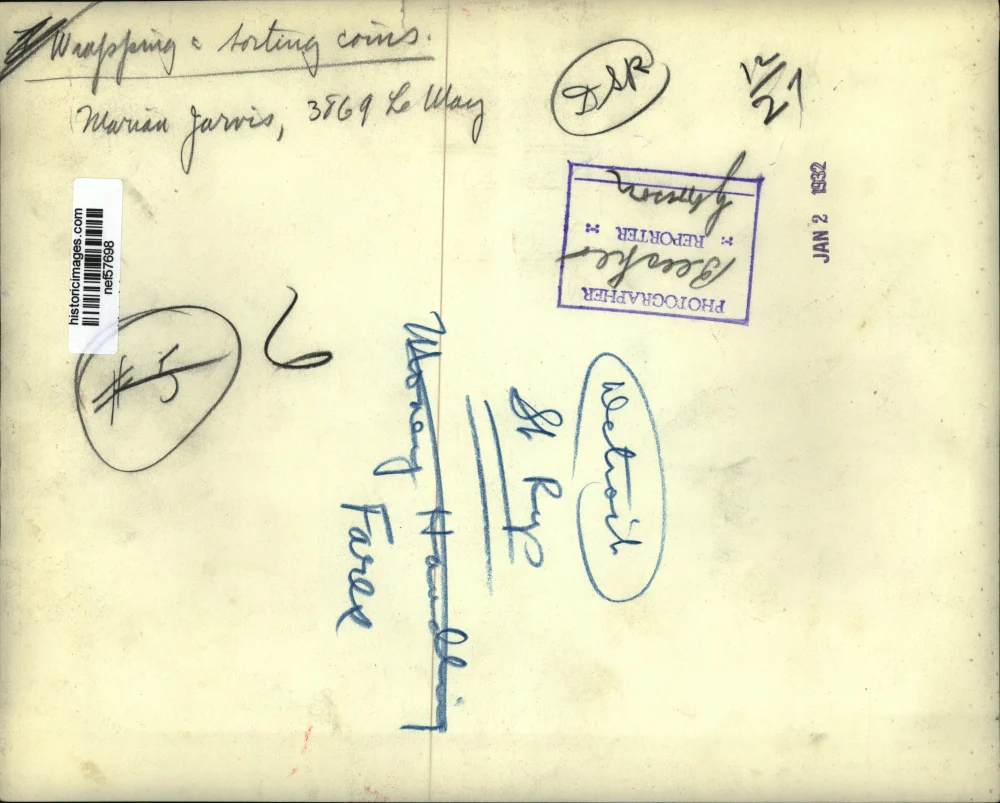 Wrapping & sorting coins.
Marian Jarvis, 3869 Le May
DSR
12/27
JAN 2 1932
PHOTOGRAPHER
REPORTER
historicimages.com
nef57698
#5
6
Detroit
St Rys
Money Handling
Fares